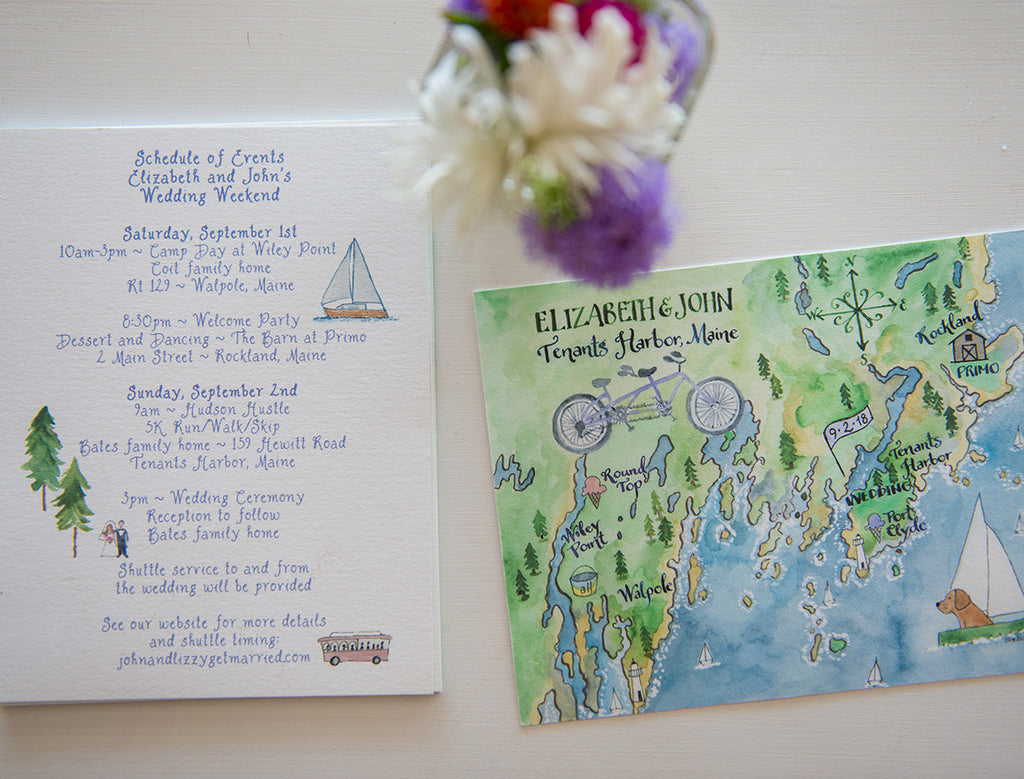 Schedule of Events
Elizabeth and John's
Wedding Weekend
Saturday, September 1st
10am-3pm ~ Camp Day at Wiley Point
Coit family home
Rt 129 ~ Walpole, Maine
8:30pm ~ Welcome Party
Dessert and Dancing ~ The Barn at Primo
2 Main Street ~ Rockland, Maine
Sunday, September 2nd
9am ~ Hudson Hustle
5K Run/Walk/Skip
Bates family home ~ 159 Hewitt Road
Tenants Harbor, Maine
3pm ~ Wedding Ceremony
Reception to follow
Bates family home
Shuttle service to and from
the wedding will be provided
See our website for more details
and shuttle timing:
johnandlizzygetmarried.com
ELIZABETH & JOHN
Tenants Harbor, Maine
N
W E
S
Rockland
PRIMO
9·2·18
Tenants
Harbor
WEDDING
Port
Clyde
Round
Top
Wiley
Point
all
Walpole